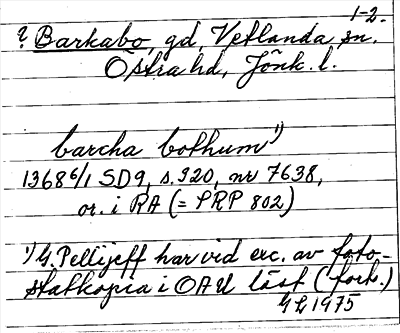 1-2.
? Barkabo, gd, Vetlanda sn.
Östra hd, Jönk. l.
barcha bothum¹)
1368 6/1 SD9, s. 320, nr 7638,
or. i RA (= PRP 802)
¹) G. Pellijeff har vid exc. av foto-
statkopia i OAU läst (fork.)
GL 1975